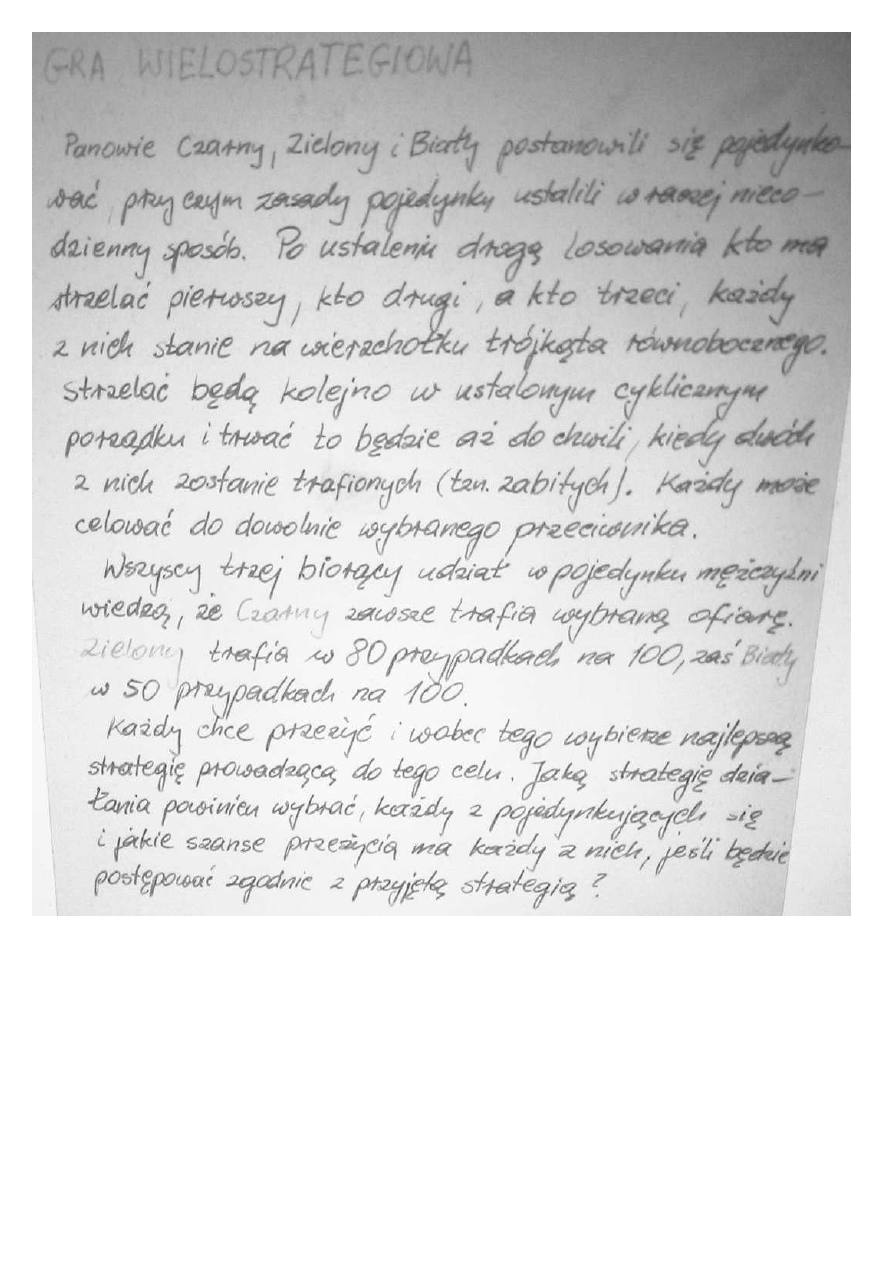 GRA WIELOSTRATEGIOWA
Panowie Czarny, Zielony i Biały postanowili się pojedynko-
wać, przy czym zasady pojedynku ustalili w raczej nieco-
dzienny sposób. Po ustaleniu drogą losowania kto ma
strzelać pierwszy, kto drugi, a kto trzeci, każdy
z nich stanie na wierzchołku trójkąta równobocznego.
Strzelać będą kolejno w ustalonym cyklicznym
porządku i trwać to będzie aż do chwili, kiedy dwóch
z nich zostanie trafionych (tzn. zabitych). Każdy może
celować do dowolnie wybranego przeciwnika.
Wszyscy trzej biorący udział w pojedynku mężczyźni
wiedzą, że Czarny zawsze trafia wybraną ofiarę.
Zielony trafia w 80 przypadkach na 100, zaś Biały
w 50 przypadkach na 100.
Każdy chce przeżyć i wobec tego wybierze najlepszą
strategię prowadzącą do tego celu. Jaką strategię dzia-
łania powinien wybrać, każdy z pojedynkujących się
i jakie szanse przeżycia ma każdy z nich, jeśli będzie
postępować zgodnie z przyjętą strategią?